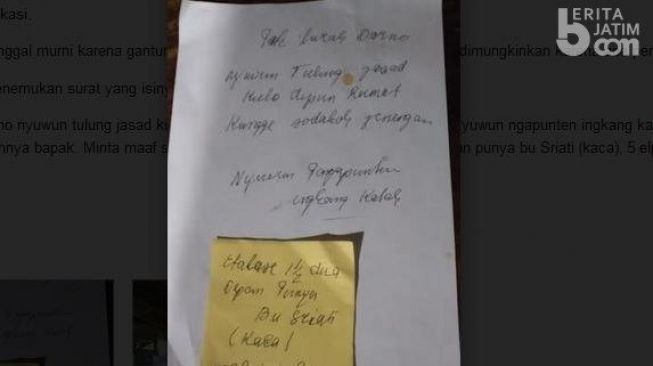 BERITA
JATIM
5.com
kasi.
nggal murni karena gantun
dimungkinkan
enemukan surat yang isiny
no nyuwun tulung jasad ku
yuwun ngapunten ingkang ka
nnya bapak. Minta maaf s
an punya bu Sriati (kaca), 5 elp
Pak lurah Darno
Nyuwun Tulung jasad
Kulo dipun Rumat
Kangge sodakoh jenengan
Nyuwun
ingkang Katah
Etalase 1 1/2 dua
Depan Punya
Bu Sriati
(Kaca)